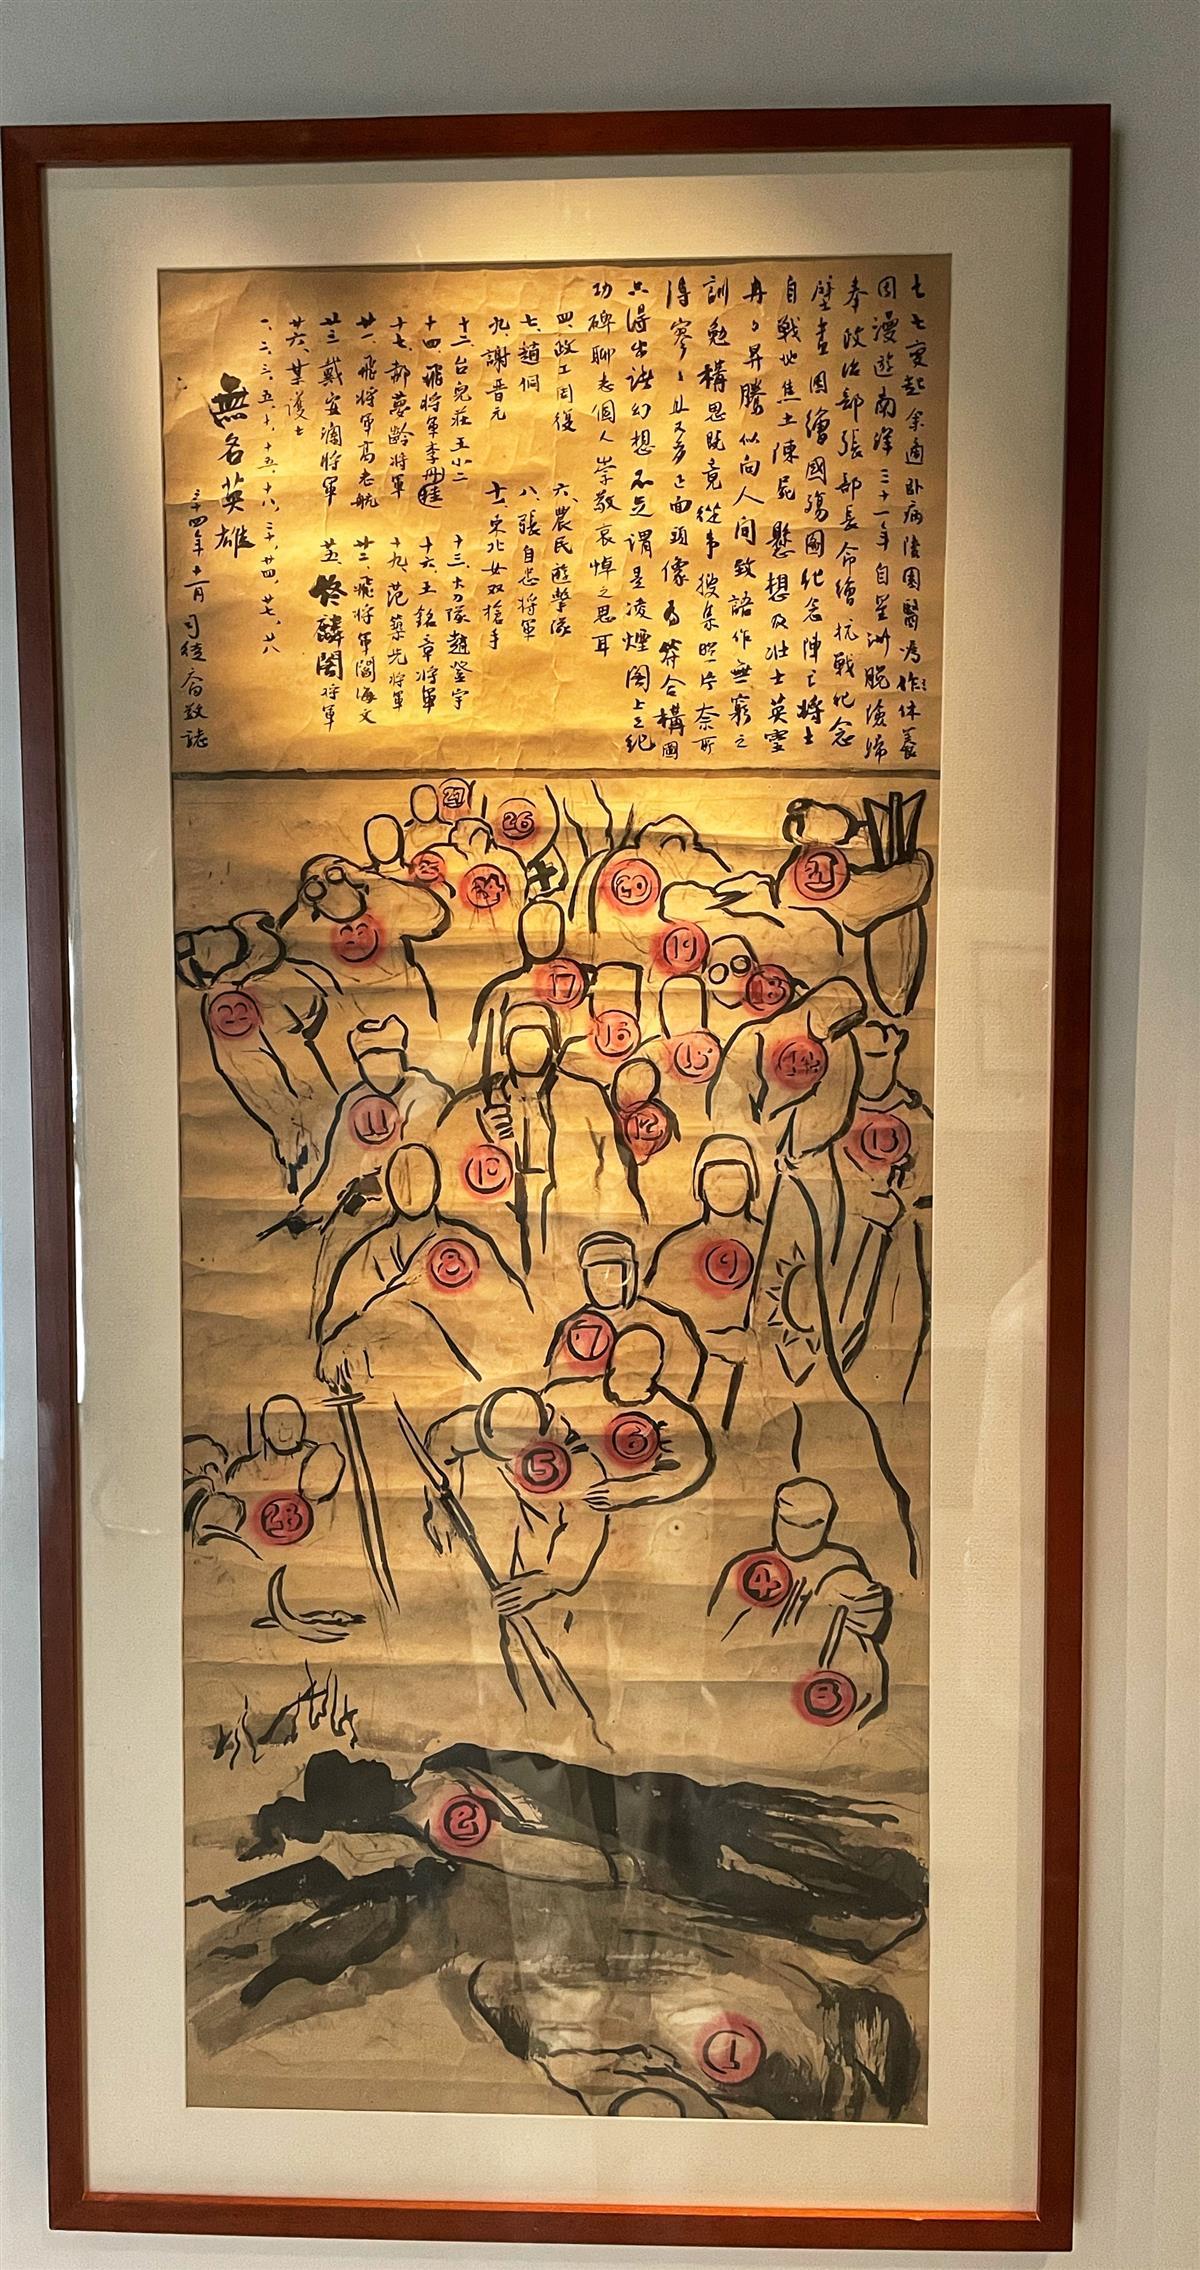 七七變起余適臥病陵園醫為作休養
因漫遊南洋三十一年自星洲脫險歸
奉政治部張部長命繪抗戰紀念
壁畫因繪國殤圖紀念陣亡將士
自戰地焦土陳屍懸想及壯士英靈
冉冉昇騰似向人間致語作無窮之
訓勉構思既竟從事搜集照片奈所
得寥寥且又多正面頭像為符合構圖
只得出諸幻想不足謂是凌煙閣上之紀
功碑聊志個人崇敬哀悼之思耳
四、政工同復 六、農民遊擊隊
七、趙侗 八、張自忠將軍
九、謝晋元 十一、東北女双槍手
十二、台兒莊王小二 十三、大刀隊趙登宇
十四、飛將軍李桂丹 十六、王銘章將軍
十七、郝夢齡將軍 十九、范築先將軍
廿一、飛將軍高志航 廿二、飛將軍閻海文
廿三、戴安瀾將軍 廿五、佟麟閣將軍
廿六、某護士
一、二、三、五、十、十五、十八、二十、廿四、廿七、廿八
無名英雄
三十四年十二月 司徒喬敬誌
27
26
25
24
20
21
23
19
22
17
18
16
15
14
11
12
13
10
8
9
7
6
5
28
4
3
2
1